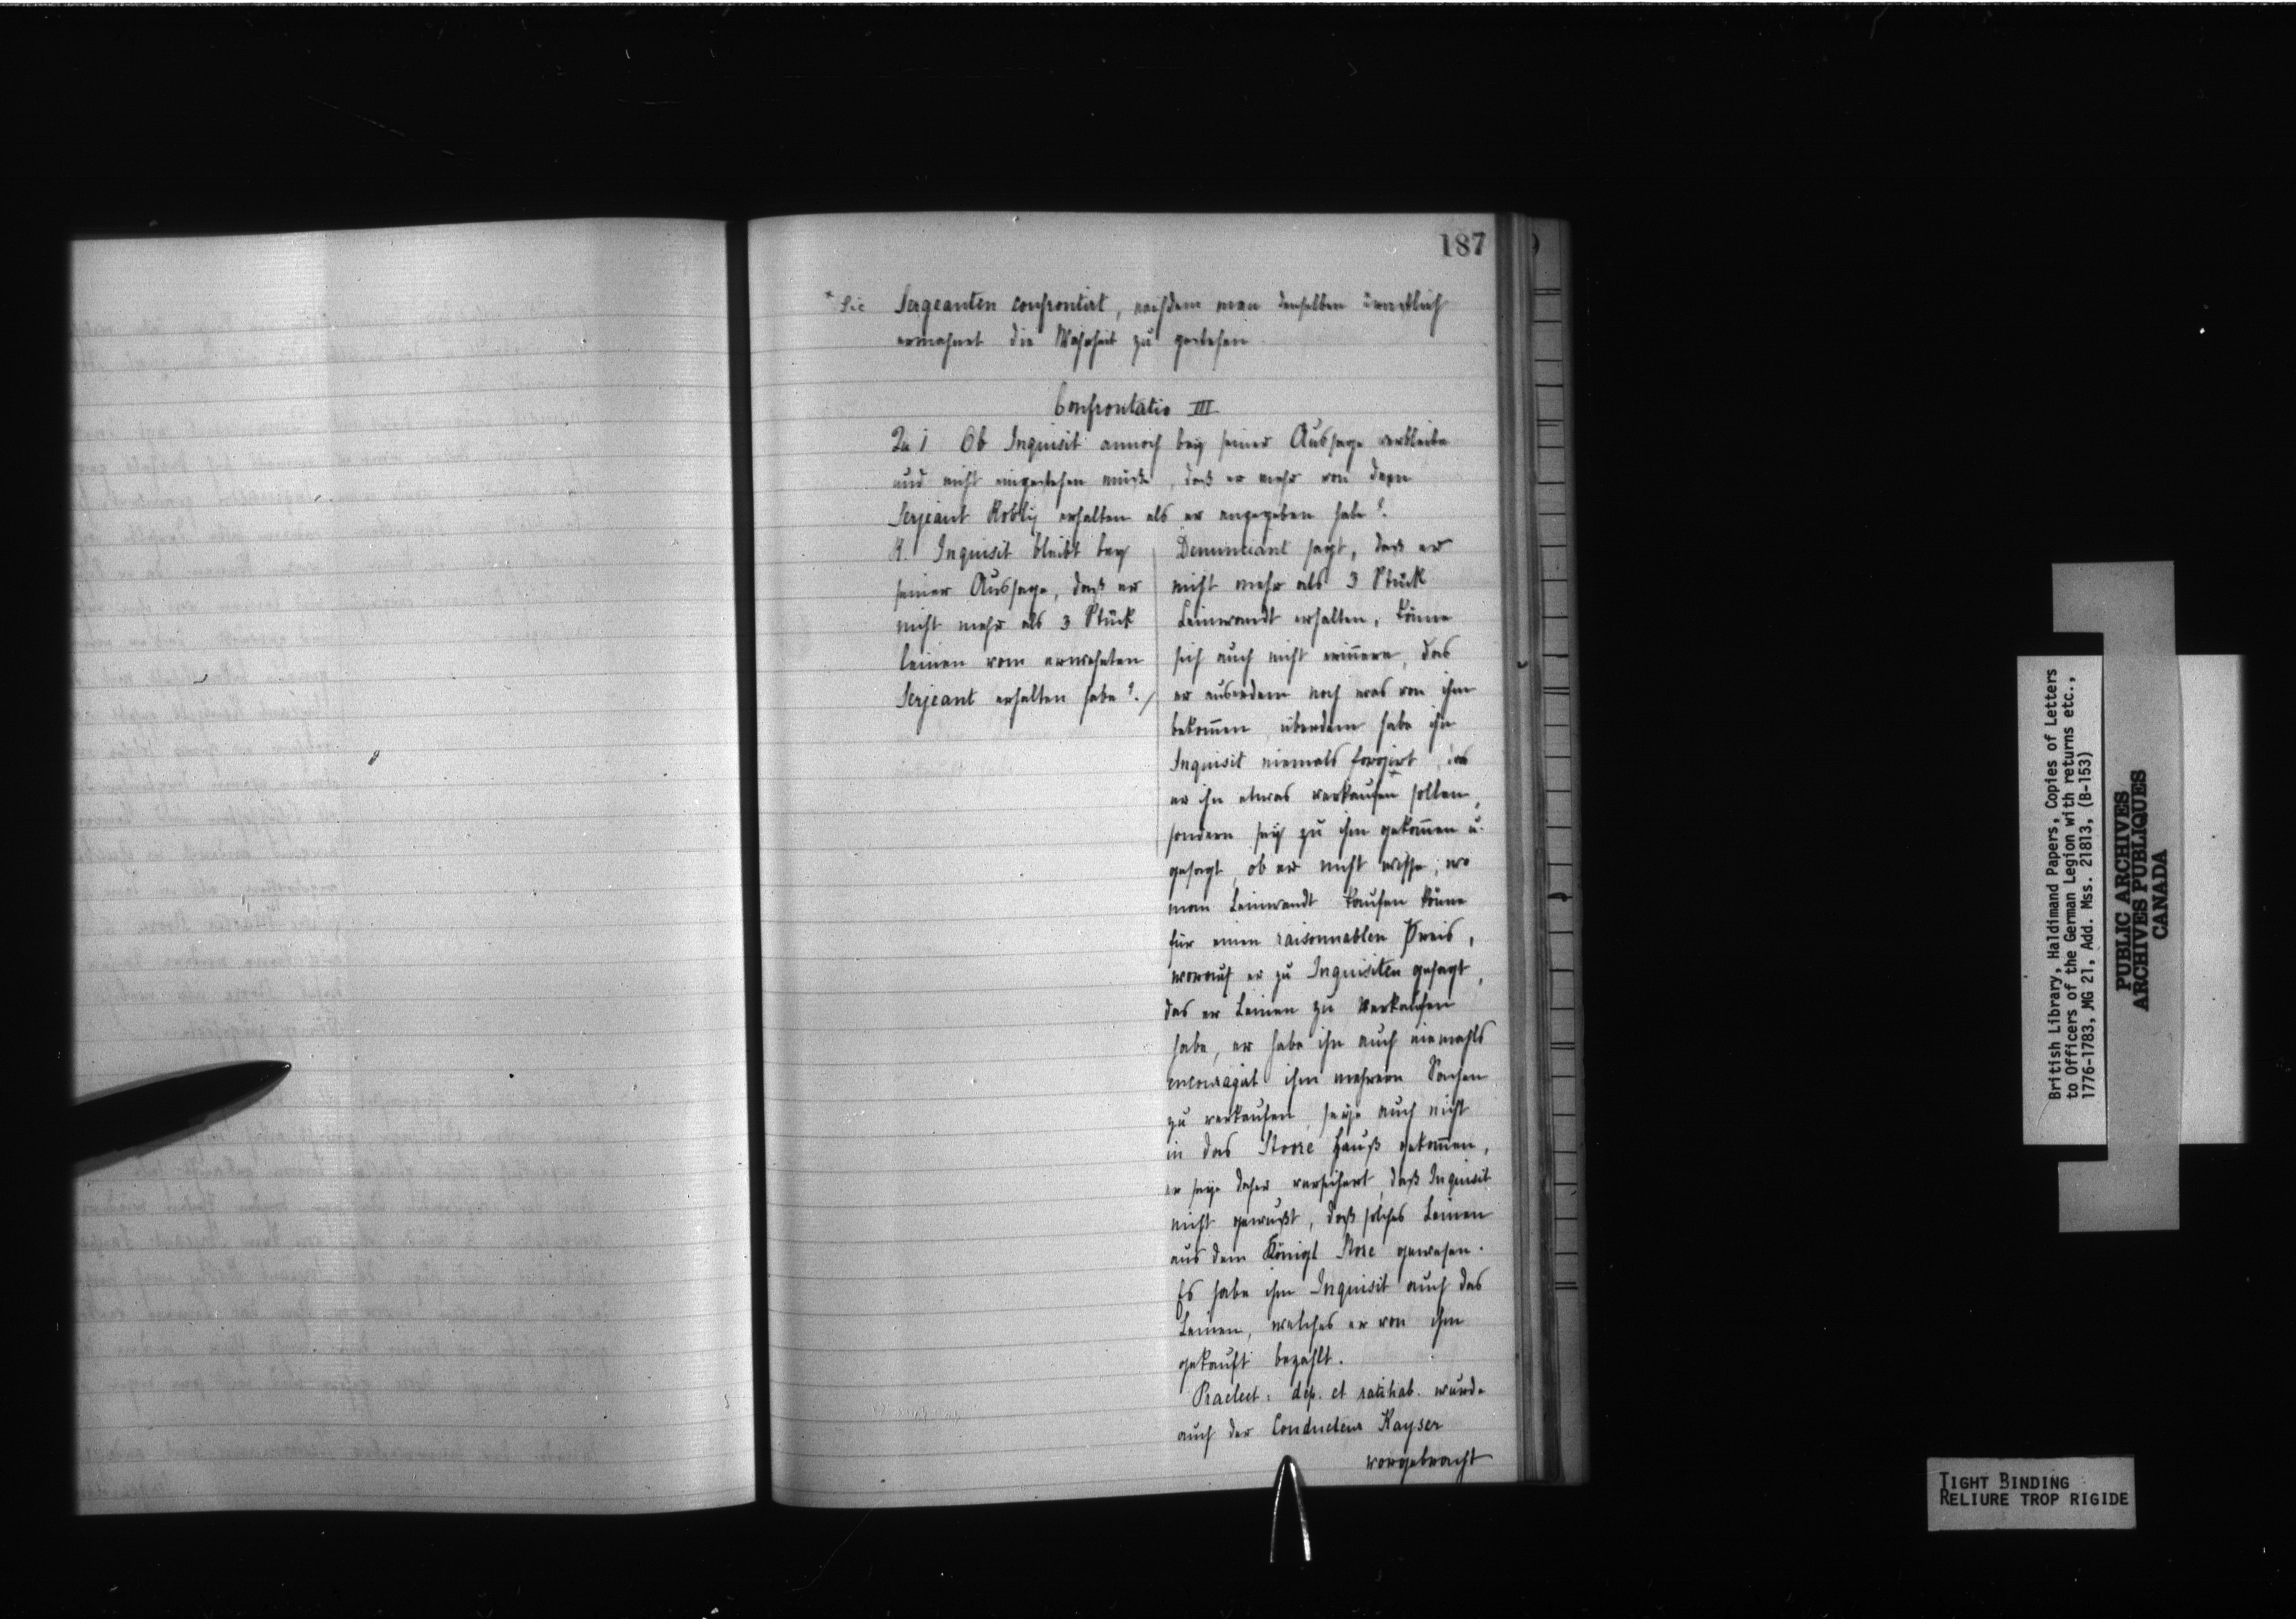 187
* Sic Sergeanten confrontirt, nachdem man denselben ernstlich
ermahnet die Wahrheit zu gestehen
Confrontatio III
Qu 1 Ob Inquisit annoch bey seiner Aussage verbleibe
und nicht eingestehen müße, daß er mehr von dem
Serjeant Robly erhalten als er angegeben habe?
R. Inquisit bleibt bey
seiner Aussage, daß er
nicht mehr als 3 Stück
leinen vom erwehnten
Serjeant erhalten habe?./
Denunciant sagt, daß er
nicht mehr als 3 Stück
Leinwandt erhalten, könne
sich auch nicht erinnern, das
er auserdem noch was von ihm
bekom̄en, überdem habe ihn
Inquisit niemals forçirt, das
er ihn etwas verkaufen sollen,
sondern sey zu ihm gekom̄en u.
gesagt, ob er nicht wisse, wo
man Leinwandt kaufen könne
für einen raisonnablen Preis,
worauf er zu Inquisiten gesagt,
das er Leinen zu verkaufen
habe, er habe ihn auch niemahls
encouragirt ihm mehrere Sachen
zu verkaufen, seye auch nicht
in das Store Hauß gekom̄en,
er seye daher versichert, daß Inquisit
nicht gewußt, daß solches Leinen
aus dem Königl Store gewesen.
Es habe ihm Inquisit auch das
Leinen, welches er von ihm
gekauft bezahlt.
Praelect: dep. et ratihab. wurde
auch der Conducteur Kayser
vorgebracht
British Library, Haldimand Papers, Copies of Letters
to Officers of the German Legion with returns etc.,
1776-1783, MG 21, Add. Mss. 21813, (B-153)
PUBLIC ARCHIVES
ARCHIVES PUBLIQUES
CANADA
TIGHT BINDING
RELIURE TROP RIGIDE